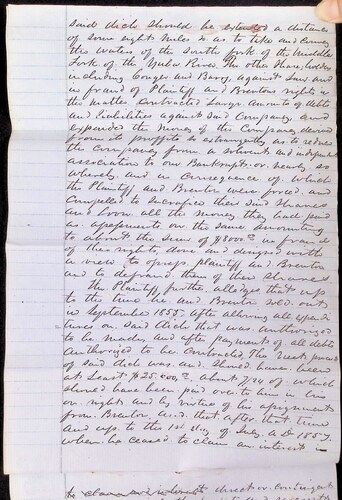 said ditch should be extended a distance
of some eight miles so as to take and convey
the waters of the South fork of the Middle
Fork of the Yuba River. The other Share holders
including Conger and Barry, against law and
in fraud of Plaintiff and Brentons rights in
the matter, Contracted Large Amounts of debts
and liabilities against said Company and
expended the money of the Company derived
from its profits so extravagantly as to reduce
the Company from a solvent and independent
association to our Bankrupt or nearly so
whereby and in Consequence of which
the Plaintiff and Brenton were forced and
Compelled to sacrifice their said Shares
and loose all the money they had paid
as assessments on the same amounting
to about the sum of $800 in fraud
of their rights & done and designed with
a view to oppress Plaintiff and Brenton
and to defraud them of their Shares
The Plaintiff further alledges that up
to the time he and Brenton sold out
in September 1855 After allowing all expendi
tures on said ditch that was Authorised
to be made and after payment of all debts
Authorized to be Contracted The Neat proceeds
of said ditch was and Should have been
at Least $25,000 About 7/24 of which
should have been paid over to him in his
own rights and by virtue of his assignment
from Brenton, And that after that time
and up to the 1st day of July A.D. 1857
when he ceased to claim an interest in